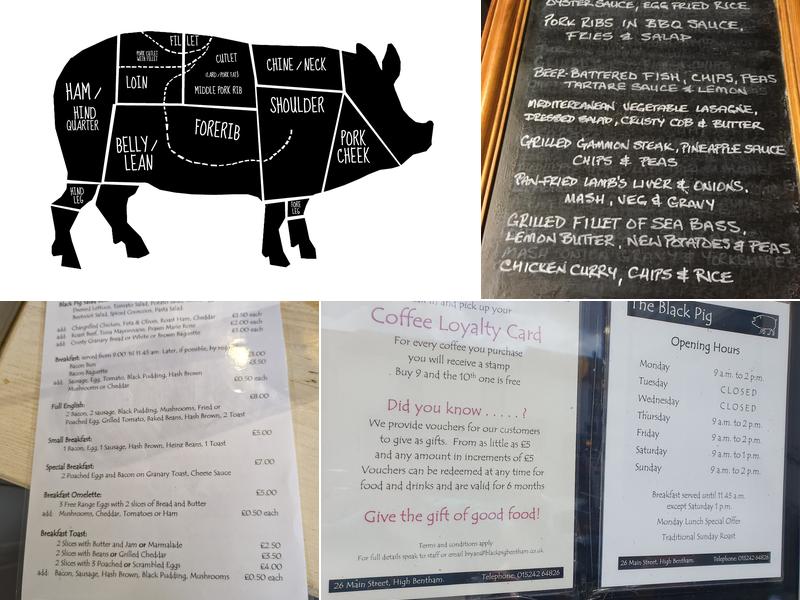 FILLET
PORK CUTLET
WITH FILLET
CUTLET
(LARD / PORK FAT)
LOIN
MIDDLE PORK RIB
CHINE / NECK
HAM /
HIND
QUARTER
SHOULDER
FORERIB
BELLY /
LEAN
PORK
CHEEK
HIND
LEG
FORE
LEG
OYSTER SAUCE, EGG FRIED RICE
PORK RIBS IN BBQ SAUCE,
FRIES & SALAD
BEER-BATTERED FISH, CHIPS, PEAS
TARTARE SAUCE & LEMON
MEDITEREANEAN VEGETABLE LASAGNE,
DRESSED SALAD, CRUSTY COB & BUTTER
GRILLED GAMMON STEAK, PINEAPPLE SAUCE
CHIPS & PEAS
PAN-FRIED LAMB'S LIVER & ONIONS,
MASH, VEG & GRAVY
GRILLED FILLET OF SEA BASS,
LEMON BUTTER, NEW POTATOES & PEAS
CHICKEN CURRY, CHIPS & RICE
Black Pig
Dressed Lettuce, Tomato Salad, Potato
Beetroot Salad, Spiced Couscous, Pasta Salad
add: Chargrilled Chicken, Feta & Olives, Roast Ham, Cheddar £1.50 each
add: Roast Beef, Tuna Mayonnaise, Prawn Marie Rose £2.00 each
add: Crusty Granary Bread or White or Brown Baguette £1.00 each
Breakfast: served from 9.00 'til 11.45 am. Later, if possible, by
Bacon Bun £3.00
Bacon Baguette £3.50
add: Sausage, Egg, Tomato, Black Pudding, Hash Brown
Mushrooms or Cheddar £0.50 each
Full English: £8.00
2 Bacon, 2 sausage, Black Pudding, Mushrooms, Fried or
Poached Egg, Grilled Tomato, Baked Beans, Hash Brown, 2 Toast
Small Breakfast: £5.00
1 Bacon, 1 Egg, 1 Sausage, Hash Brown, Heinz Beans, 1 Toast
Special Breakfast: £7.00
2 Poached Eggs and Bacon on Granary Toast, Cheese Sauce
Breakfast Omelette: £5.00
3 Free Range Eggs with 2 slices of Bread and Butter
add: Mushrooms, Cheddar, Tomatoes or Ham £0.50 each
Breakfast Toast:
2 Slices with Butter and Jam or Marmalade £2.50
2 Slices with Beans or Grilled Cheddar £3.50
2 Slices with 3 Poached or Scrambled Eggs £4.00
add: Bacon, Sausage, Hash Brown, Black Pudding, Mushrooms £0.50 each
and pick up your
Coffee Loyalty Card
For every coffee you purchase
you will receive a stamp
Buy 9 and the 10th one is free
Did you know . . . . . ?
We provide vouchers for our customers
to give as gifts. From as little as £5
and any amount in increments of £5
Vouchers can be redeemed at any time for
food and drinks and are valid for 6 months
Give the gift of good food!
Terms and conditions apply
For full details speak to staff or email bryan@blackpigbentham.co.uk
26 Main Street, High Bentham. Telephone: 015242 64826
The Black Pig
Opening Hours
Monday 9 a.m. to 2 p.m.
Tuesday CLOSED
Wednesday CLOSED
Thursday 9 a.m. to 2 p.m.
Friday 9 a.m. to 2 p.m.
Saturday 9 a.m. to 2 p.m.
Sunday 9 a.m. to 2 p.m.
Breakfast served until 11.45 a.m.
except Saturday 1 p.m.
Monday Lunch Special Offer
Traditional Sunday Roast
26 Main Street, High Bentham. Telephone: 015242 64826